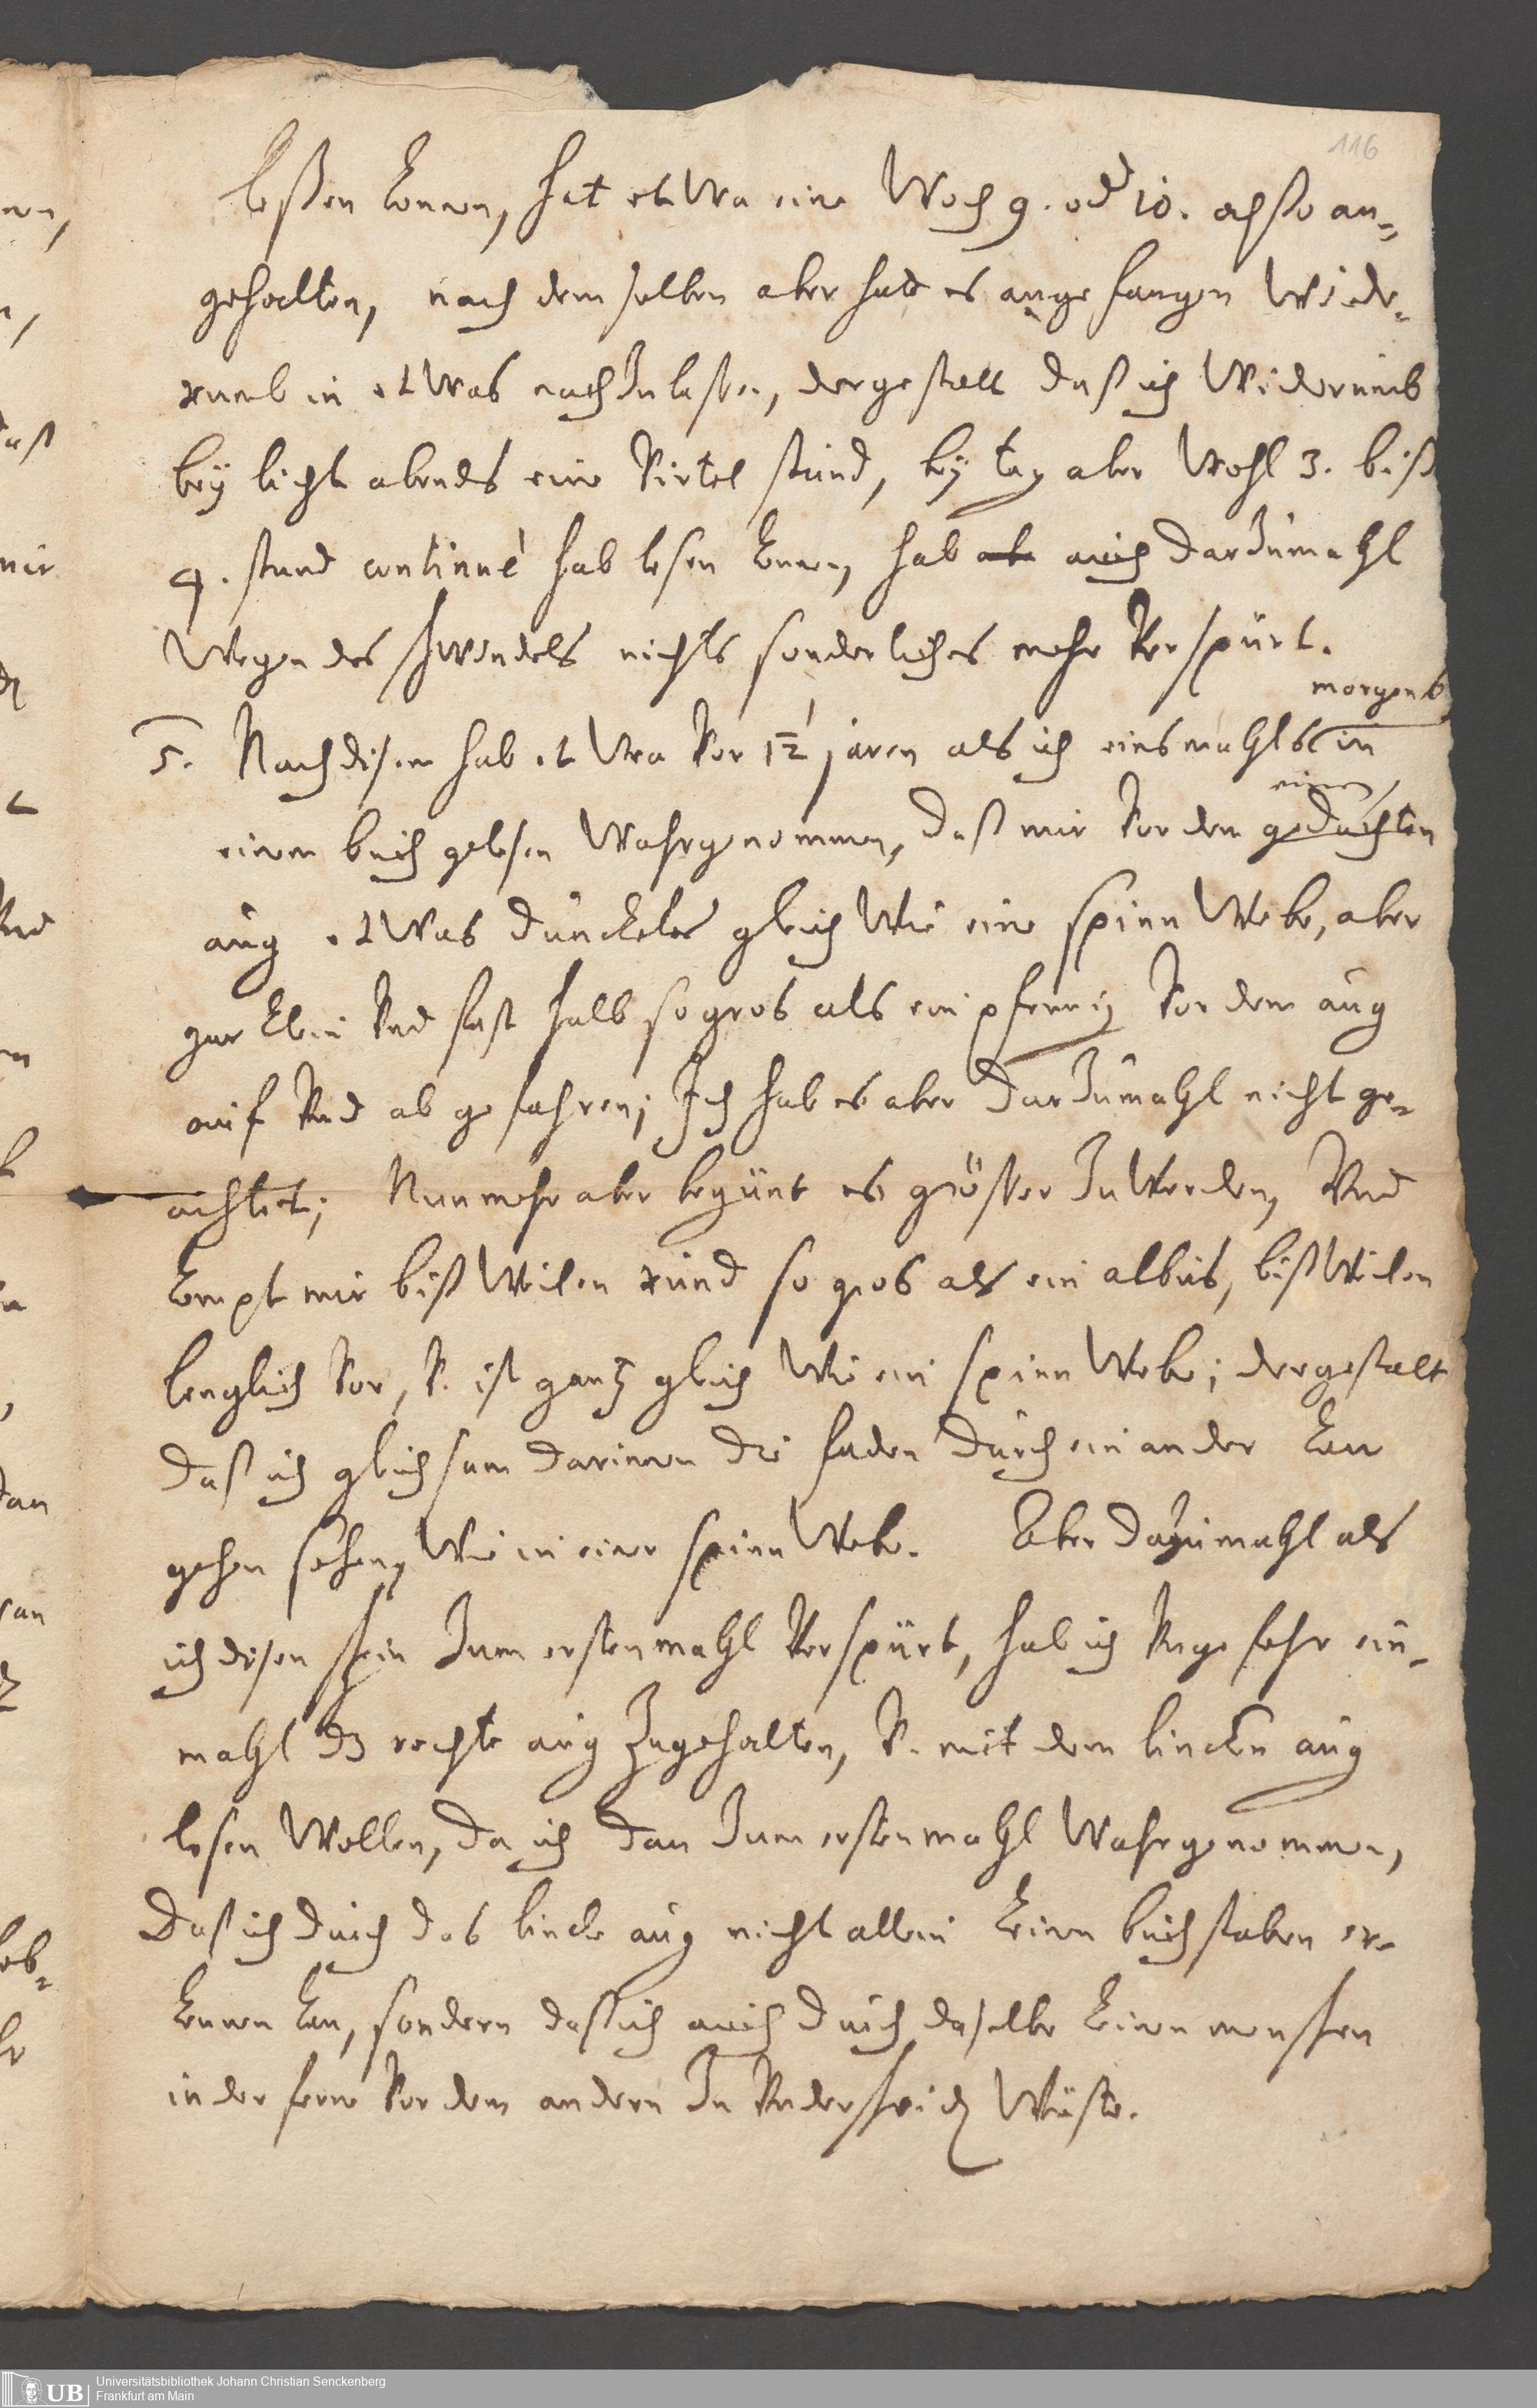 116
leßen können, hat etwa eine Woch 9. od 10. also an=
gehalten, nach dem selben aber hatt es angefangen Wide=
rumb in etwas nachZulaßen, dergestalt daß ich Widerumb
beÿ licht abends eine Virtel stund, beÿ tag aber Wohl 3. biß
4. stund continué hab lesen können, hab auch darZumahl
Wegen des schwindels nichts sonderliches mehr Verspürt.
morgens
5. Nach disem hab etwa Vor 1½ jaren als ich einsmahls in
einen
einem buch gelesen Wahrgenommen, daß mir Vor dem gedachten
aug etwas dunckeles gleich Wie eine spinnWebe, aber
gar klein Vnd fast halb so gros als ein pfennig Vor dem aug
auf Vnd ab gefahren; Ich hab es aber darZumahl nicht ge=
achtet; Nunmehr aber begünt es größer ZuWerden, Vnd
kompt mir bißWeilen rund so gros als ein albus, bißWeilen
lenglich Vor, V. ist gantz gleich Wie ein spinnWebe; dergestalt
daß ich gleichsam darinnen die faden durch einander kan
gehen sehen, Wie in einer spinnWebe. Eben daZumahl als
ich disen schein Zum erstenmahl Verspürt, hab ich Vngefehr ein=
mahl dz rechte aug Zugehalten, V. mit dem lincken aug
lesen Wollen, da ich dan Zum erstenmahl Wahrgenommen,
Daß ich durch das lincke aug nicht allein keinen buchstaben er=
kennen kan, sondern daß ich auch durch daselbe keinen menschen
in der ferne Vor dem andern Zu Vnderscheiden Wüste.
Universitätsbibliothek Johann Christian Senckenberg
Frankfurt am Main
UB